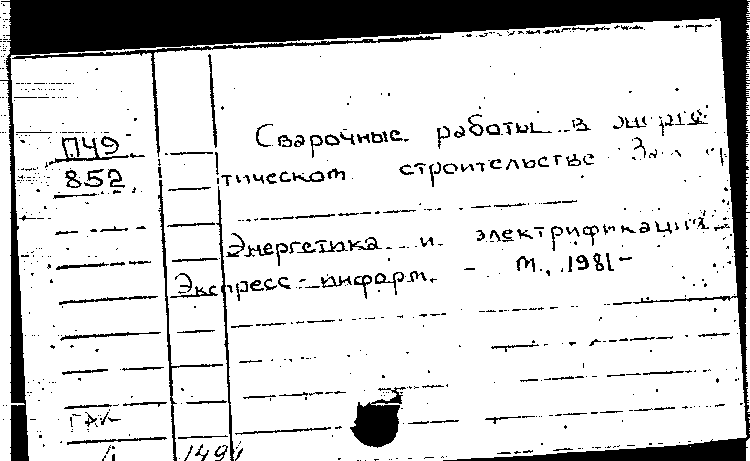 П49
852
Сварочные работы в энерге
тическом строительстве
Энергетика и электрификация.
Экспресс-информ. - М., 1981-
ГАК
1494